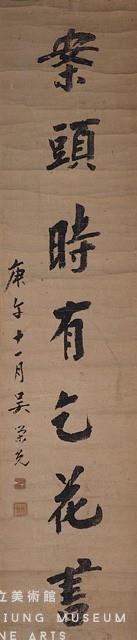 案頭時有乞花書
庚午十一月吳榮光
立美術館
IUNG MUSEUM
NE ARTS